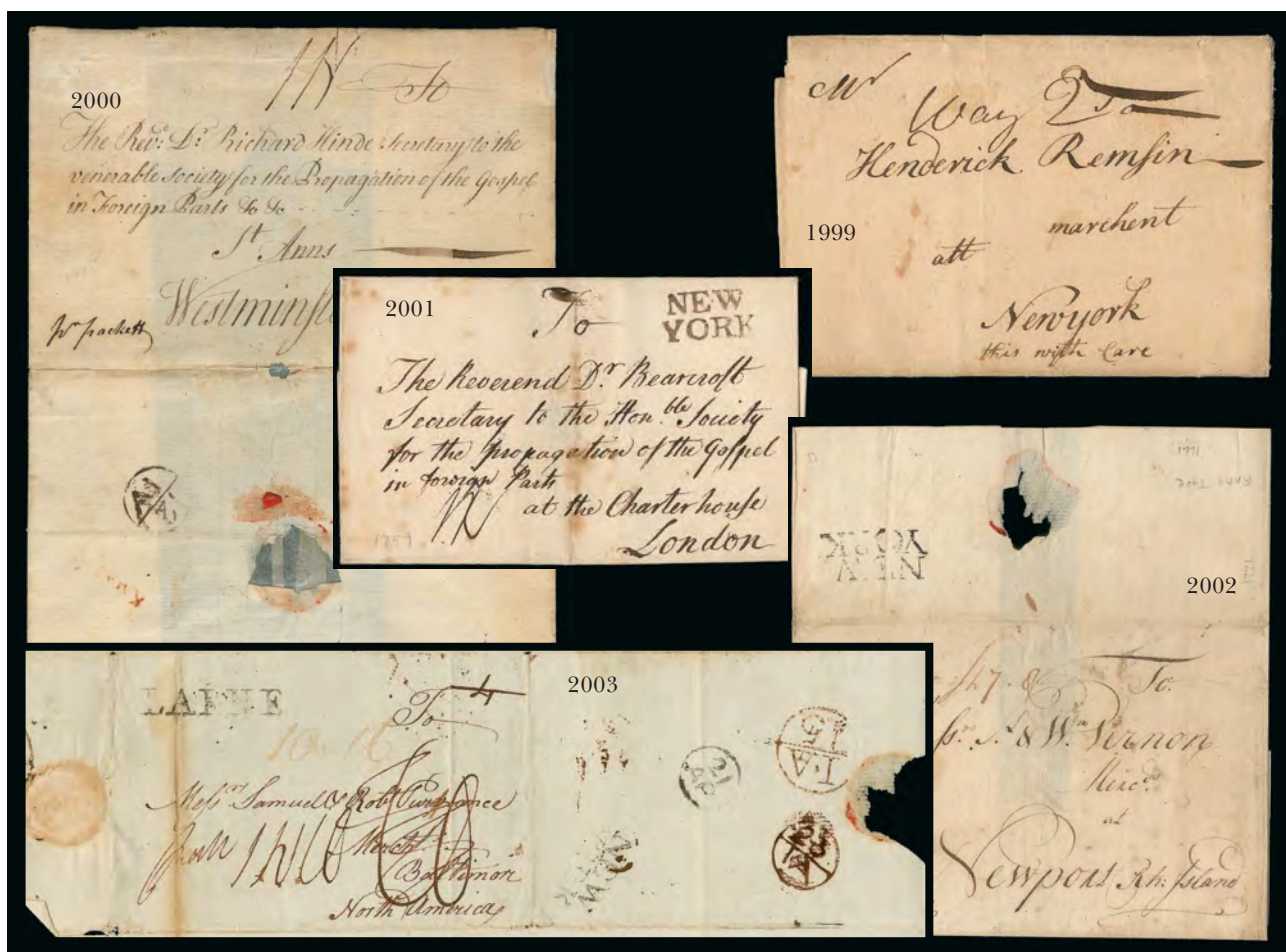 2000
To
The Revd. Dr. Richard Hinde Secretary to the
venerable Society for the Propagation of the Gospel
in Foreign Parts &c &c
St. Anns
Westminst
pr packett
1999
Mr
Way
To
Henderick Remsin
marchent
att
Newyork
this with Care
2001
To
NEW
YORK
The Reverend Dr. Bearcroft
Secretary to the Honble Society
for the propagation of the Gospel
in foreign Parts
at the Charterhouse
London
1759
2002
NEW
YORK
1771
To
& Wm Vernon
at
Newport Rh: Island
2003
LARNE
To
Messrs Samuel & Robt Purviance
Mercts
Baltimor
North America
21
AP
NEW